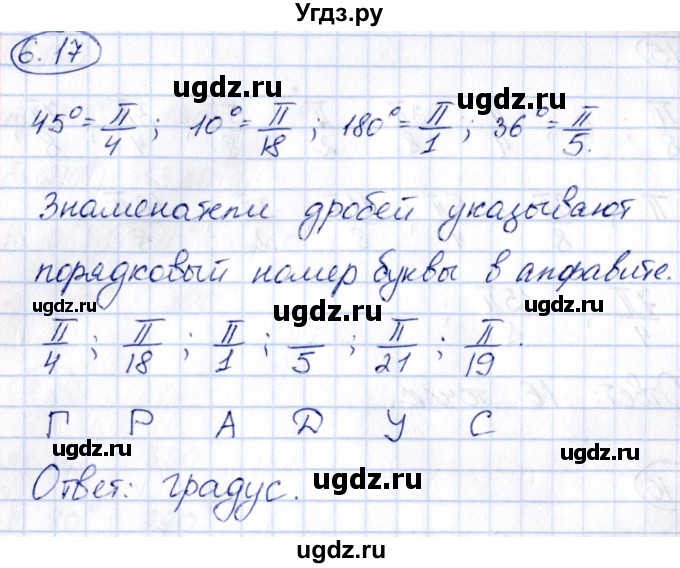 Угдз.ру
6.17
ugdz.ru ugdz.ru
45° = π/4 ; 10° = π/18 ; 180° = π/1 ; 36° = π/5.
Знаменатели дробей указывают
ugdz.ru
порядковый номер буквы в алфавите.
ugdz.ru ugdz.ru ugdz.ru
π/4 ; π/18 ; π/1 ; /5 ; π/21 ; π/19 .
Г Р А Д У С
ugdz.ru ugdz.ru
Ответ: градус.
ugdz.ru
ugdz.ru